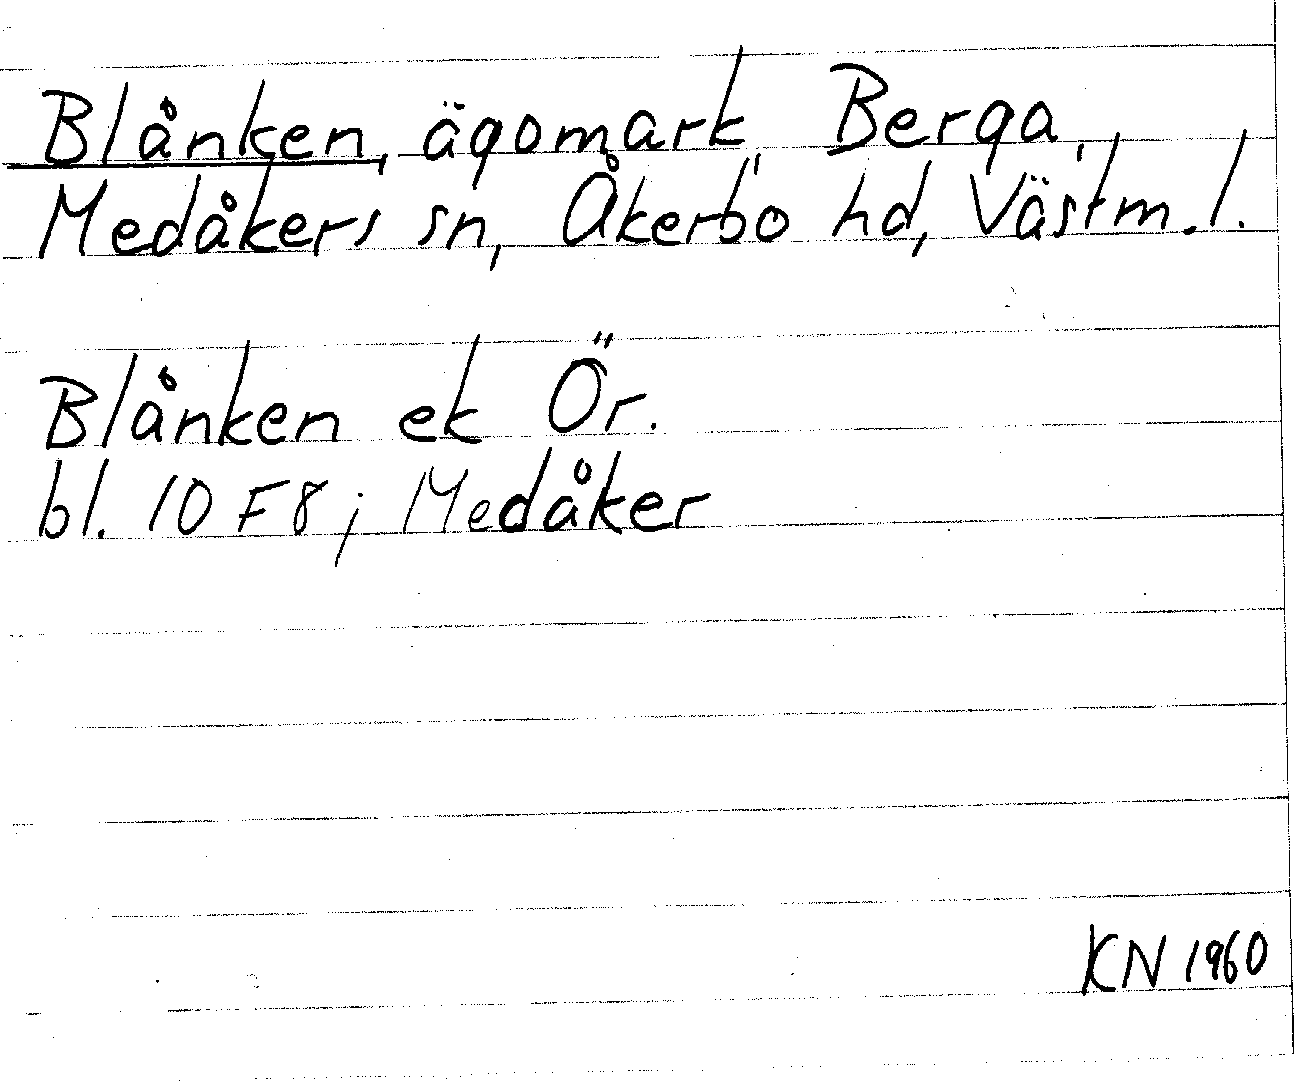 Blånken, ägomark, Berga,
Medåkers sn, Åkerbo hd, Västm. l.
Blånken ek Ör.
bl. 10 F8; Medåker
KN 1960